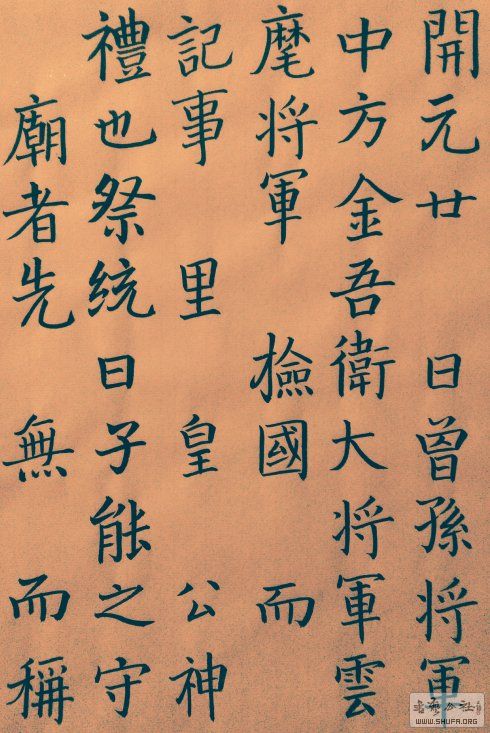 開元廿日曾孫將軍
中方金吾衛大將軍雲
麾將軍撿國而
記事里皇公神
禮也祭統曰子能之守
廟者先無而稱
WWW.SHUFA.ORG